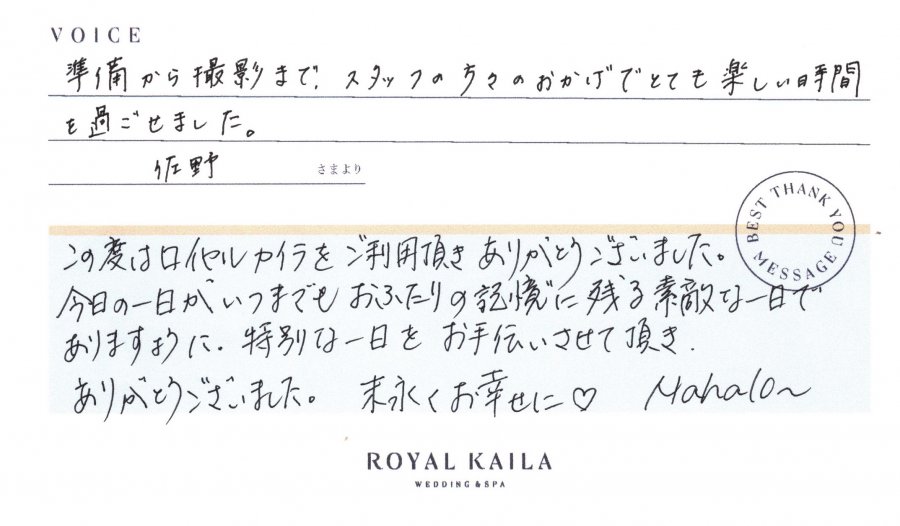 VOICE
準備から撮影まで、スタッフの方々のおかげでとても楽しい時間
を過ごせました。
佐野 さまより
BEST THANK YOU MESSAGE
この度はロイヤルカイラをご利用頂きありがとうございました。
今日の一日がいつまでもおふたりの記憶に残る素敵な一日で
ありますように、特別な一日をお手伝いさせて頂き、
ありがとうございました。 末永くお幸せに♡ Mahalo〜
ROYAL KAILA
WEDDING & SPA